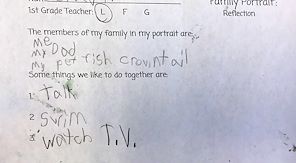 Family Portrait:
Reflection
1st Grade Teacher: L F G
The members of my family in my portrait are:
me
my Dad
my pet fish
Some things we like to do together are
1. Talk
2. swim
3. watch T.V.